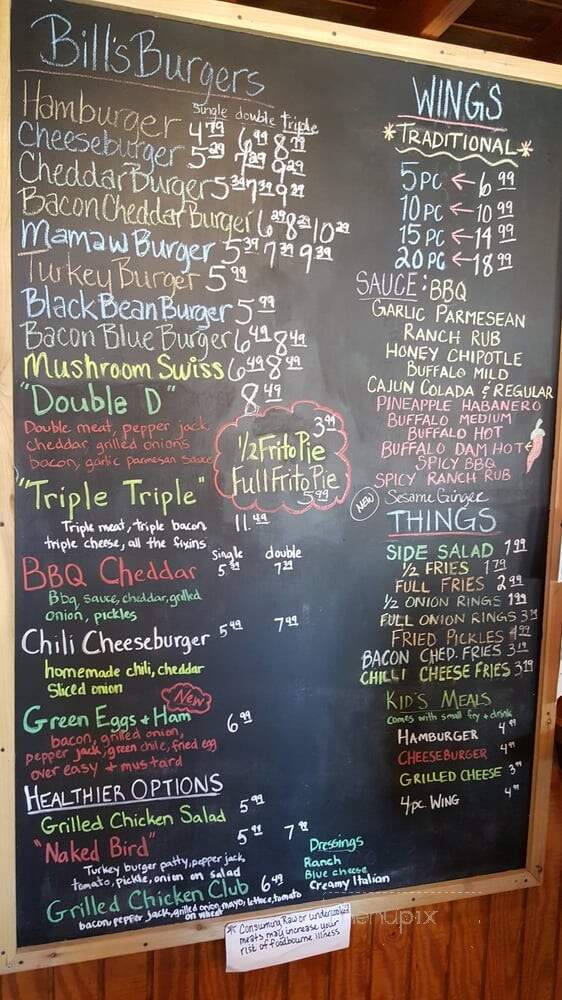 Bill's Burgers
single double triple
Hamburger 4 79 6 99 8 79
Cheeseburger 5 29 7 29 9 29
Cheddar Burger 5 39 7 39 9 39
Bacon Cheddar Burger 6 29 8 29 10 29
Mamaw Burger 5 39 7 39 9 39
Turkey Burger 5 99
Black Bean Burger 5 99
Bacon Blue Burger 6 49 8 49
Mushroom Swiss 6 49 8 49
"Double D" 8 49
Double meat, pepper jack,
cheddar grilled onions
bacon, garlic parmesan sauce
3.99
1/2 Frito Pie
Full Frito Pie
5.99
"Triple Triple" 11.49
Triple meat, triple bacon
triple cheese, all the fixins
single double
BBQ Cheddar 5 7
Bbq sauce, cheddar, grilled
onion, pickles
Chili Cheeseburger 5 49 7 49
homemade chili, cheddar
Sliced onion
New
Green Eggs + Ham 6 99
bacon, grilled onion,
pepper jack, green chile, fried egg
over easy + mustard
HEALTHIER OPTIONS
Grilled Chicken Salad 5 99
"Naked Bird" 5 99 7 99
Turkey burger patty, pepper jack,
tomato, pickle, onion on salad
Grilled Chicken Club 6 49
bacon, pepper jack, grilled onion, mayo, lettuce, tomato
on wheat
Dressings
Ranch
Blue cheese
Creamy Italian
WINGS
*TRADITIONAL*
5 PC ← 6 99
10 PC ← 10 99
15 PC ← 14 99
20 PC ← 18 99
SAUCE: BBQ
GARLIC PARMESEAN
RANCH RUB
HONEY CHIPOTLE
BUFFALO MILD
CAJUN COLADA & REGULAR
PINEAPPLE HABANERO
BUFFALO MEDIUM
BUFFALO HOT
BUFFALO DAM HOT
SPICY BBQ
SPICY RANCH RUB
NEW Sesame Ginger
THINGS
SIDE SALAD 1 99
1/2 FRIES 1 79
FULL FRIES 2 99
1/2 ONION RINGS 1 99
FULL ONION RINGS 3 19
FRIED PICKLES 4 99
BACON CHED. FRIES 3 19
CHILLI CHEESE FRIES 3 19
KID'S MEALS
comes with small fry + drink
HAMBURGER 4 99
CHEESEBURGER 4 99
GRILLED CHEESE 3 99
4 pc. WING 4 99
* Consuming Raw or undercooked
meats may increase your
risk of foodbourne illness
menupix